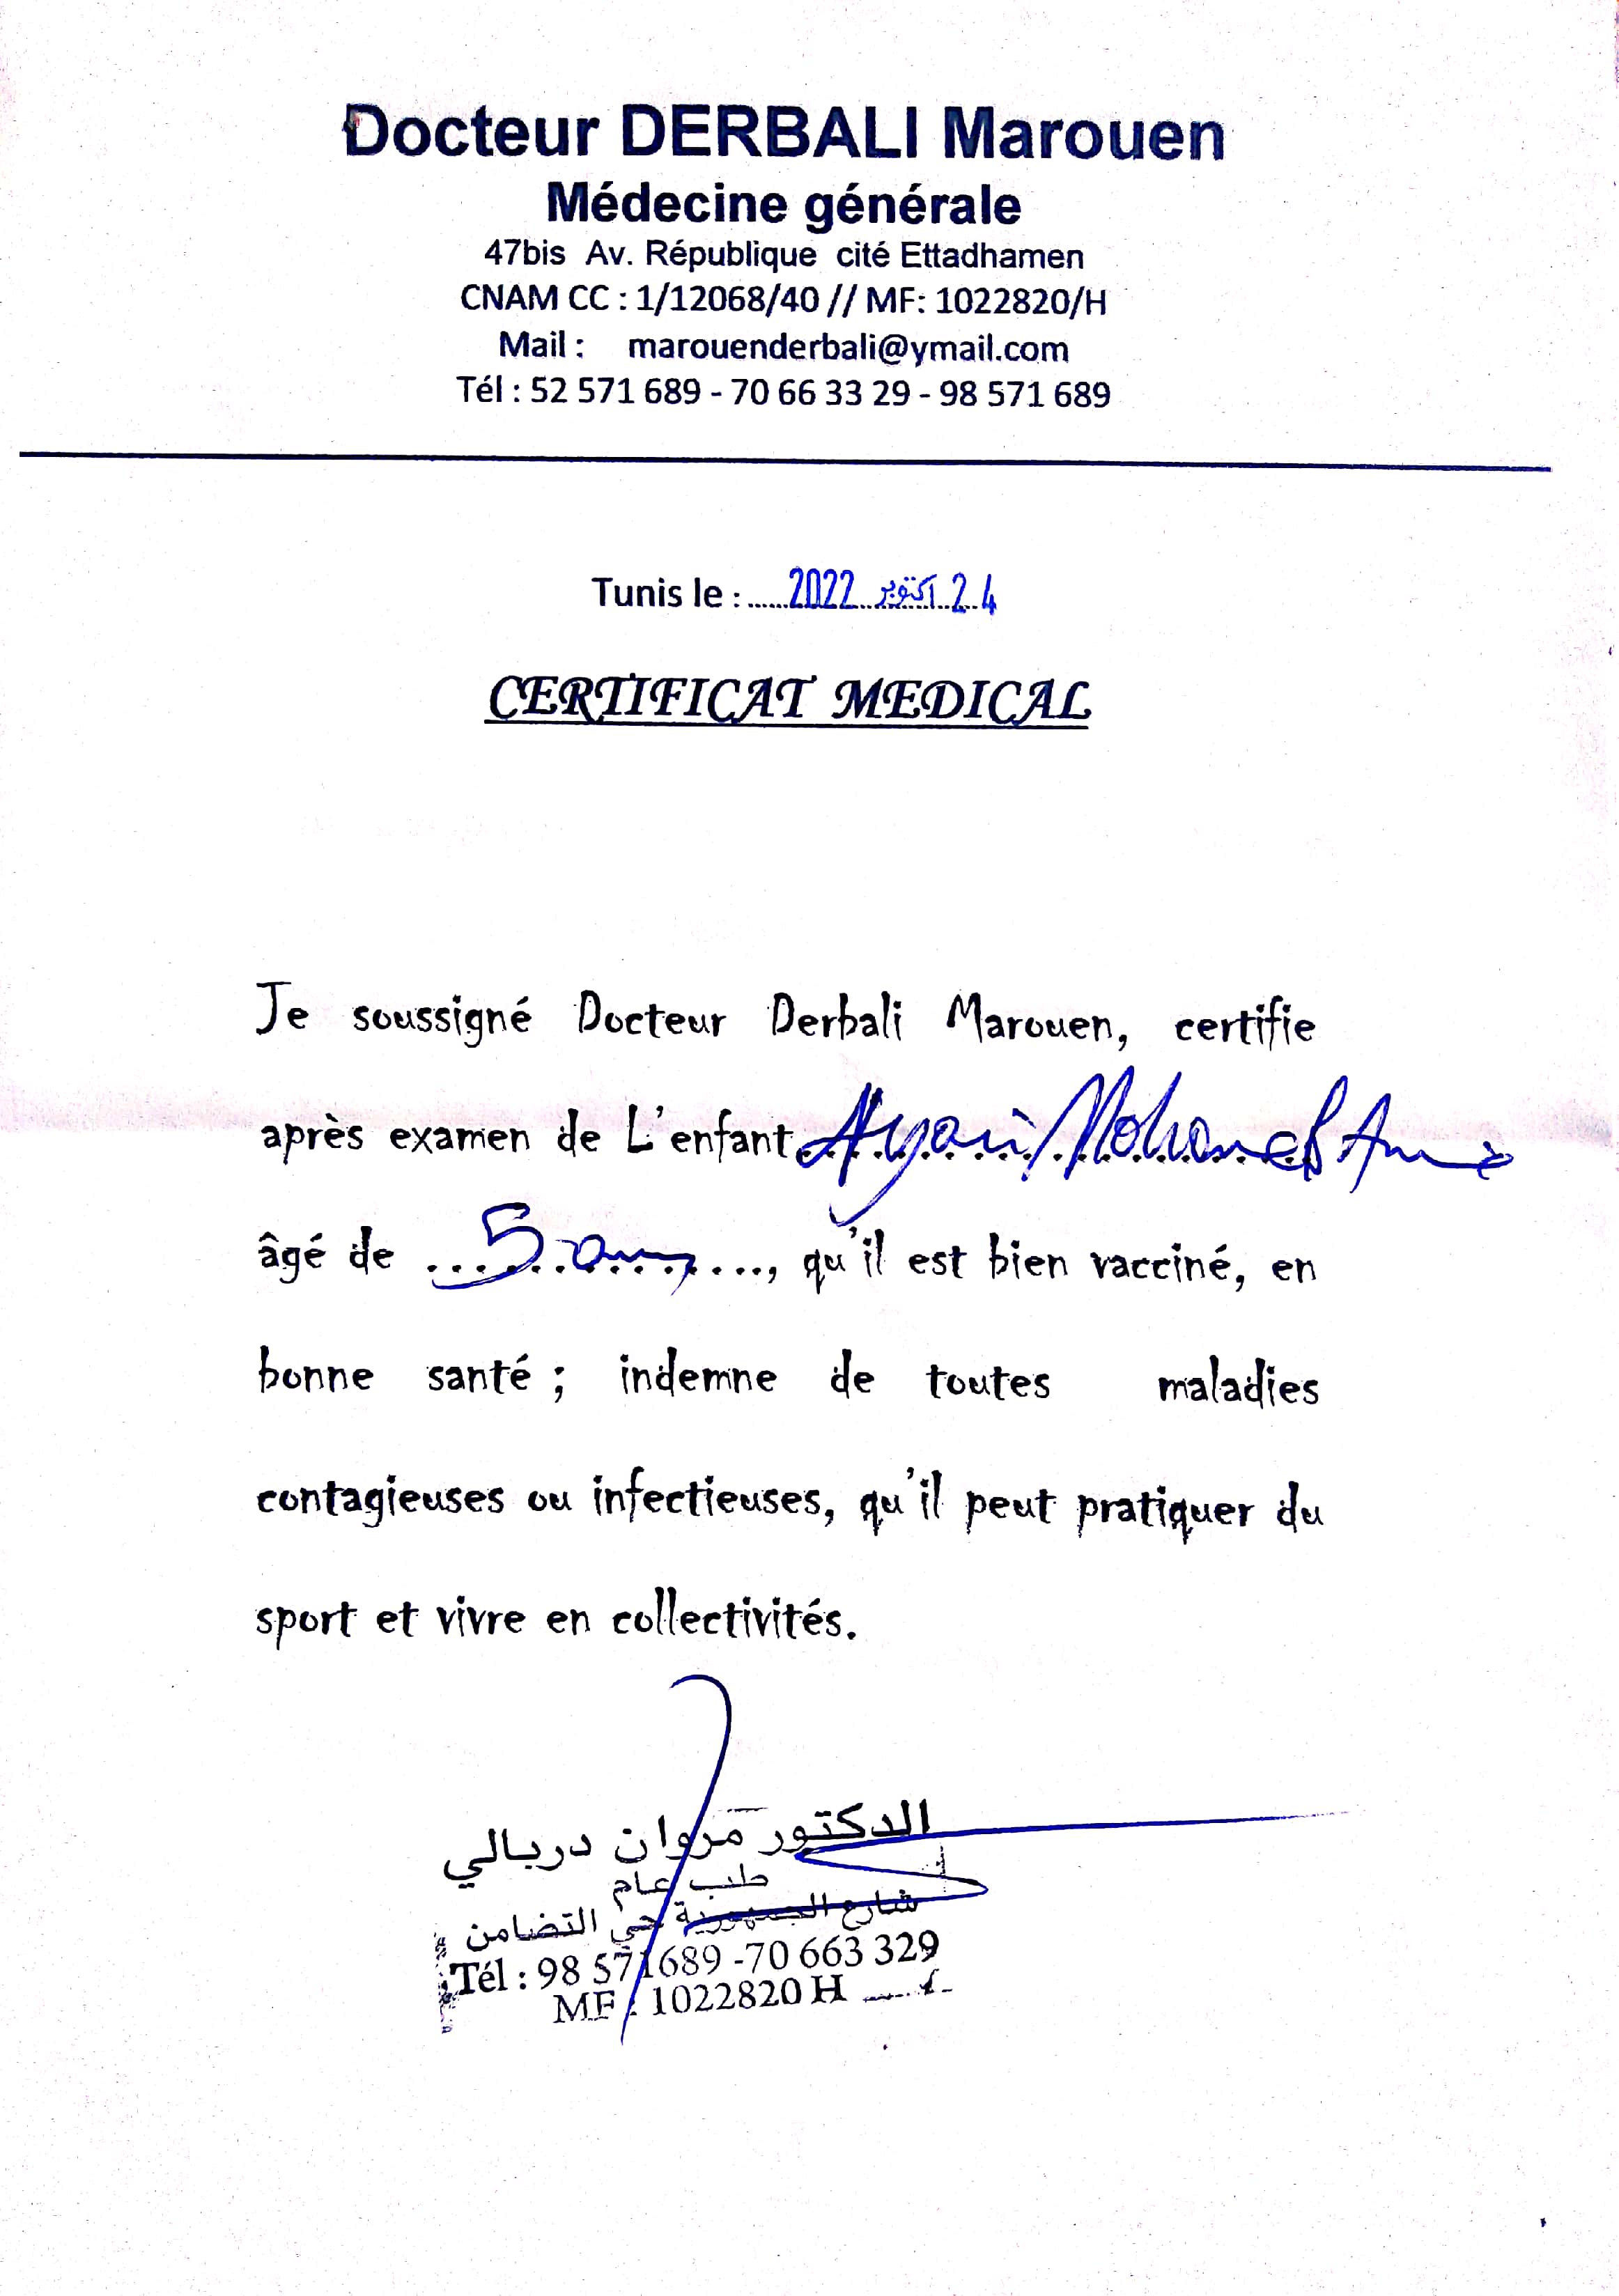 Docteur DERBALI Marouen
Médecine générale
47bis Av. République cité Ettadhamen
CNAM CC : 1/12068/40 // MF: 1022820/H
Mail : marouenderbali@ymail.com
Tél : 52 571 689 - 70 66 33 29 - 98 571 689
Tunis le : 24 أكتوبر 2022
CERTIFICAT MEDICAL
Je soussigné Docteur Derbali Marouen, certifie
après examen de L'enfant Ayari Mohamed
âgé de 5 ans, qu'il est bien vacciné, en
bonne santé ; indemne de toutes maladies
contagieuses ou infectieuses, qu'il peut pratiquer du
sport et vivre en collectivités.
الدكتور مروان دربالي
طب عام
شارع الجمهورية حي التضامن
Tél : 98 571689 -70 663 329
MF : 1022820 H